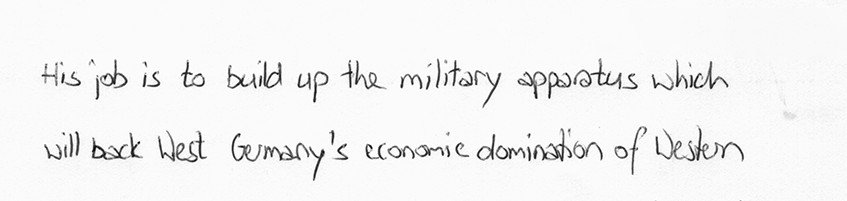 His job is to build up the military apparatus which
will back West Germany's economic domination of Western